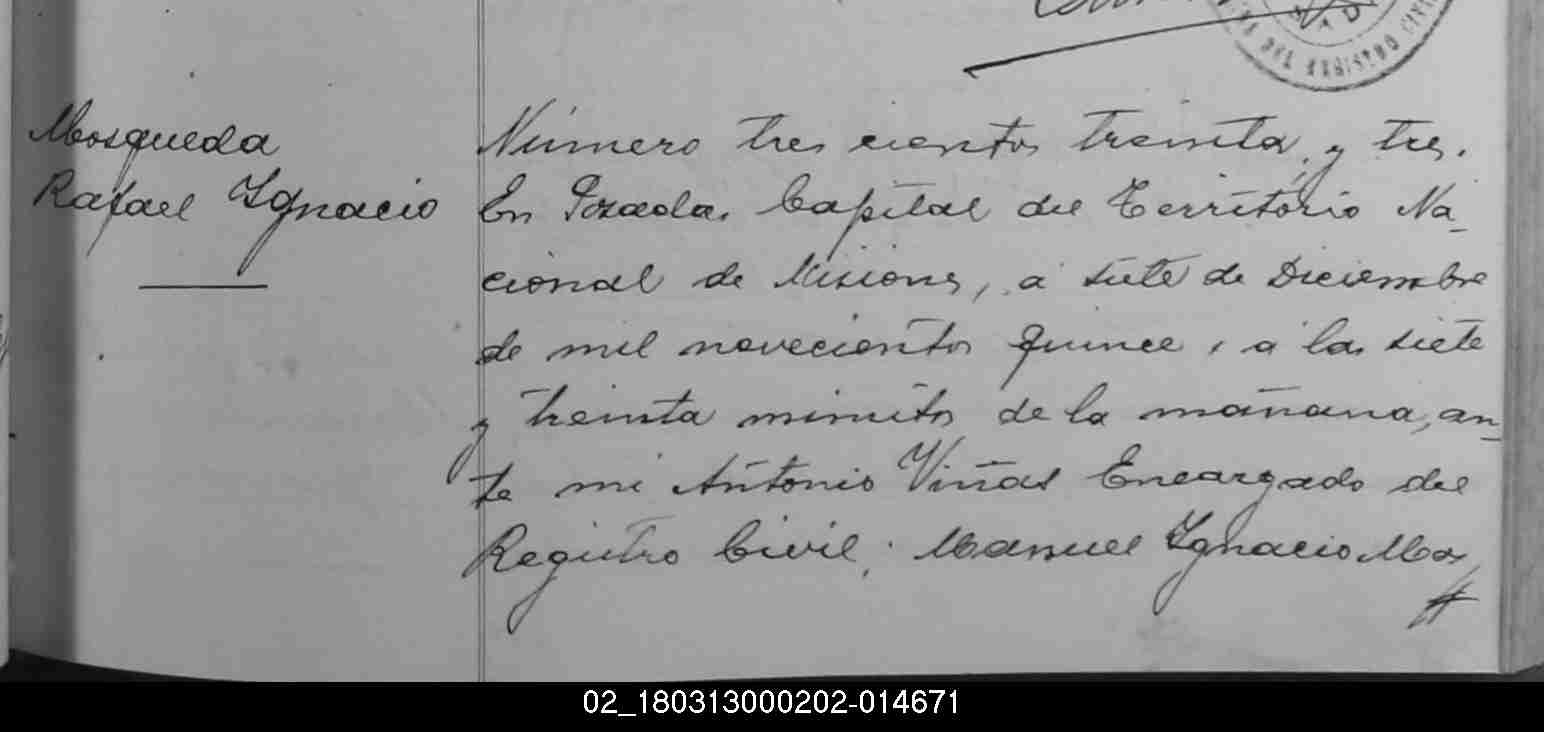 DEL REGISTRO CIVIL
Mosqueda
Rafael Ignacio
Número tres cientos treinta y tres.
En Posadas Capital del Território Na-
cional de Misiones, a siete de Diciembre
de mil novecientos quince, a las siete
y treinta minutos de la mañana, an-
te mi Antonio Viñas Encargado del
Registro Civil; Manuel Ignacio Mos
02_180313000202-014671